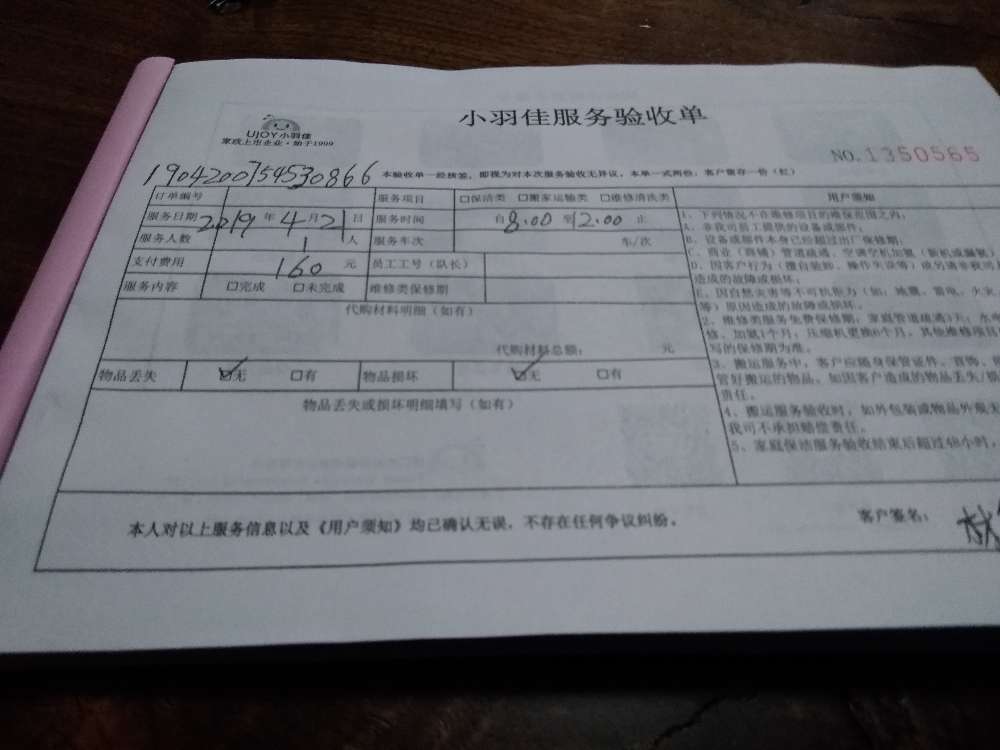 小羽佳服务验收单
UJOY小羽佳
家政上市企业·始于1999
NO.1350565
1904200754530866
本验收单一经核签，即视为对本次服务验收无异议，本单一式两份：客户留存一份（红）
订单编号 服务项目 □保洁类 □搬家运输类 □维修清洗类
服务日期 2019 年 4 月 21 日 服务时间 自 8.00 到 12.00 止
服务人数 1 人 服务车次 车/次
支付费用 160 元 员工工号（队长）
服务内容 □完成 □未完成 维修类保修期
代购材料明细（如有）
代购材料总额： 元
物品丢失 ☑无 □有 物品损坏 ☑无 □有
物品丢失或损坏明细填写（如有）
用户须知
1、下列情况不在维修项目的维保范围之内，
A、非我司员工提供的设备或部件；
B、设备或部件本身已经超过出厂保修期；
C、商业（商铺）管道疏通、空调空机加氟（新机或漏氟）
D、因客户行为（擅自验卸、操作失误等）或另请非我司
造成的故障或损坏；
E、因自然灾害等不可抗拒力（如：地震、雷电、火灾、
等）原因造成的故障或损坏。
2、维修类服务免费保修期，家庭管道疏通3天，水电
修、加氟1个月，压缩机更换6个月，其他维修项目
写的保修期为准。
3、搬运服务中，客户应随身保管证件、首饰、
管好搬运的物品，如因客户造成的物品丢失/损
责任。
4、搬运服务验收时，如外包装或物品外观无
我司不承担赔偿责任。
5、家庭保洁服务验收结束后超过48小时，
本人对以上服务信息以及《用户须知》均已确认无误，不存在任何争议纠纷。
客户签名：